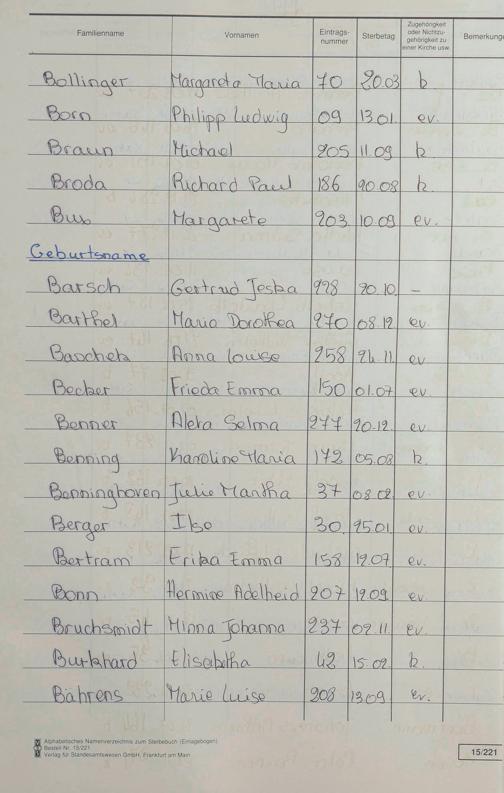 Familienname Vornamen Eintrags-nummer Sterbetag Zugehörigkeit oder Nichtzu-gehörigkeit zu einer Kirche usw. Bemerkunge
Bollinger Margareta Maria 70 20.03 k
Born Philipp Ludwig 09 13.01. ev.
Braun Michael 205 11.09 k
Broda Richard Paul 186 20.08 k.
Bus Margarete 203 10.09 ev.
Geburtsname
Barsch Gertrud Jeska 228 20.10. –
Barthel Maria Dorothea 270 08.12 ev.
Anna Louise 258 24.11. ev
Becker Frieda Emma 150 01.07 ev.
Benner Selma 277 20.12. ev.
Benning Karoline Maria 172 05.08 k.
Benninghoven Julie Martha 37 08.02. ev.
Berger Ilse 30. 25.01. ev.
Bertram Erika Emma 158 12.07 ev.
Bonn Hermine Adelheid 207 12.09. ev
Bruchsmidt Minna Johanna 237 02.11. ev.
Burkhard Elisabetha 42 15.02. k.
Bährens Marie Luise 208 13.09 ev.
Alphabetisches Namenverzeichnis zum Sterbebuch (Einlagebogen)
Bestell Nr. 15/221
Verlag für Standesamtswesen GmbH, Frankfurt am Main
15/221